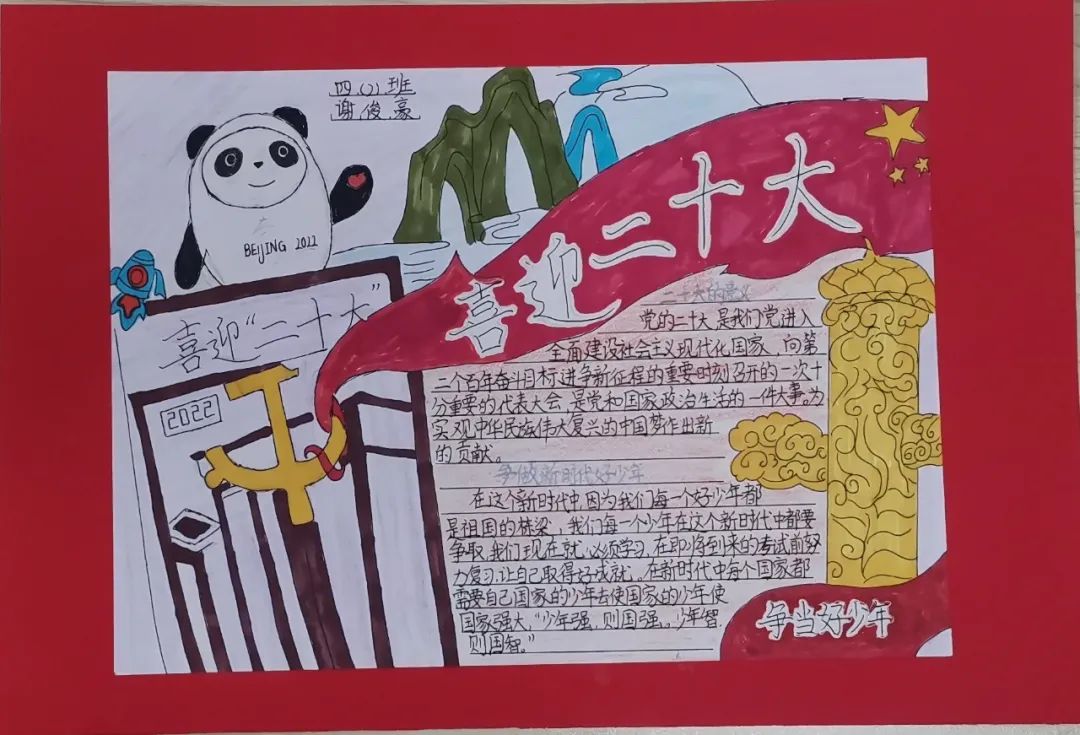 四(2)班
谢俊豪
BEIJING 2022
喜迎二十大
喜迎“二十大”
2022
二十大的意义
党的二十大是我们党进入
全面建设社会主义现代化国家,向第
二个百年奋斗目标,进争新征程的重要时刻召开的一次十
分重要的代表大会,是党和国家政治生活的一件大事。为
实观中华民族伟大复兴的中国梦作出新
的贡献。
争做新时代好少年
在这个新时代中,因为我们每一个好少年都
是祖国的栋梁,我们每一个少年在这个新时代中都要
争取,我们现在就必须学习,在即将到来的考试前努
力复习,让自己取得好成就。在新时代中每个国家都
需要自己国家的少年去使国家的少年使
国家强大,“少年强,则国强。少年智,
则国智。”
争当好少年